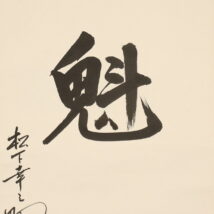 魁
松下幸之助